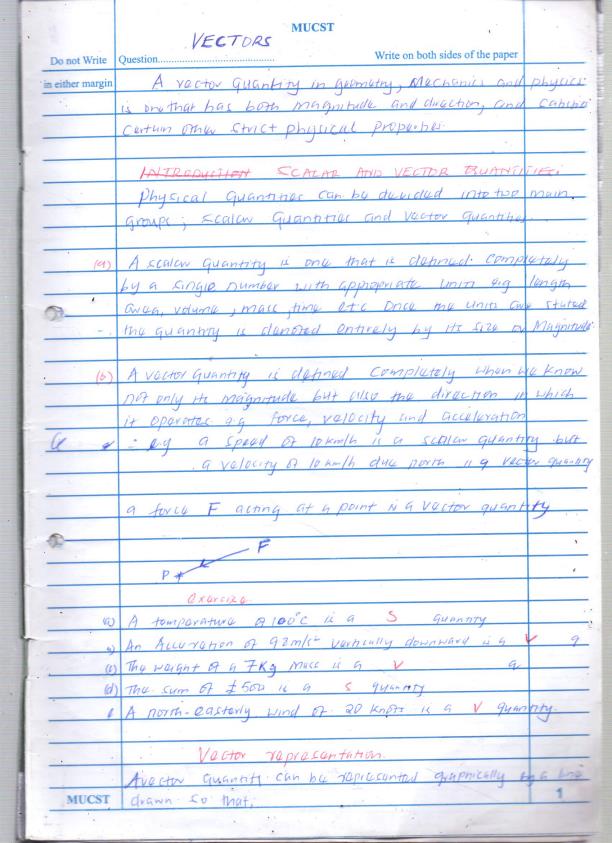 MUCST
VECTORS
Do not Write Question Write on both sides of the paper
in either margin A vector Quantity in geometry, Mechanics and physics
is one that has both magnitude and direction, and
Certain other strict physical properties.
INTRODUCTION SCALAR AND VECTOR QUANTITIES.
Physical Quantities can be devided into two main
groups; scalar Quantities and Vector Quantities
(a) A scalar Quantity is one that is defined Completely
by a single number with appropriate units e.g length
area, volume, mass, time etc Once the units are stated
the quantity is denoted entirely by its size or Magnitude
(b) A vector Quantity is defined Completely when we know
not only its magnitude but also the direction in which
it operates e.g force, velocity and acceleration
∴ e.g a speed of 10km/h is a scalar quantity but
a velocity of 10km/h due north is a vector quantity
a force F acting at a point is a vector quantity
F
P
exercize
(a) A temperature of 100°c is a S quantity
An of 9.2m/s² vertically downward is a V q
(c) The weight of a 7kg mass is a V q
(d) The sum of £500 is a s quantity
A north-easterly wind of 20 knots is a V quantity.
Vector representation.
A vector quantity can be represented graphically by a line
MUCST drawn so that, 1